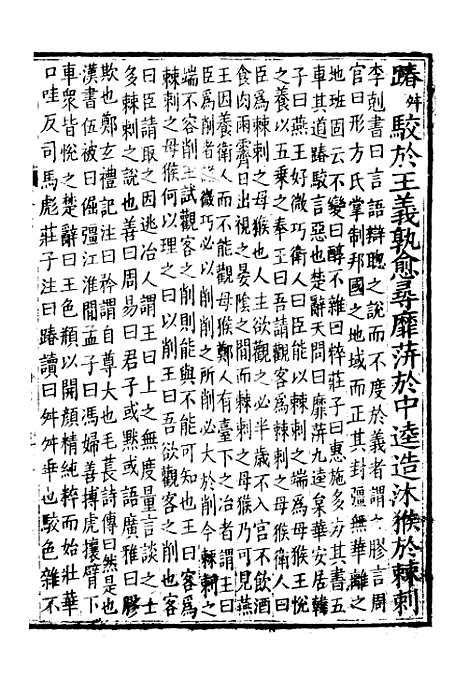 踳舛駮於王義孰愈尋靡蓱於中逵造沐猴於棘刺
李剋書曰言語辯聦之說而不度於義者謂之膠言周
官曰形方氏掌制邦國之地域而正其封彊無華離之
地班固云不變曰醇不雜曰粹莊子曰惠施多方其書五
車其道踳駮言惡也楚辭天問曰靡蓱九逵枲華安居韓
子曰燕王好微巧衛人曰臣能以棘刺之端爲母猴王悅
之養以五乘之奉王曰吾請觀客爲棘刺之母猴客曰
臣爲棘刺之母猴也人主欲觀之必半歲不入宮不飲酒
食肉雨霽日出視之晏陰之間而棘刺之母猴乃可見燕
王因養衛人而不能觀母猴鄭人有臺下之冶者謂王曰
臣爲削者微巧必以削削之所削必大於削今棘刺之
端不容削王試觀客之削則能與不能可知也王曰客爲
棘刺之母猴何以理之曰以削王曰吾欲觀客之削也客
曰臣請取之因逃冶人謂王曰上之無度量言談之士
多棘刺之說也善曰周易曰君子或默或語廣雅曰膠
欺也鄭玄禮記注曰矜謂自尊大也毛萇詩傳曰然是也
漢書伍被曰倔彊江淮閒孟子曰馮婦善搏虎攘臂下
車衆皆悅之楚辭曰王色頩以開顏精純粹而始壯華
口哇反司馬彪莊子注曰踳讀曰舛舛乖也駮色雜不